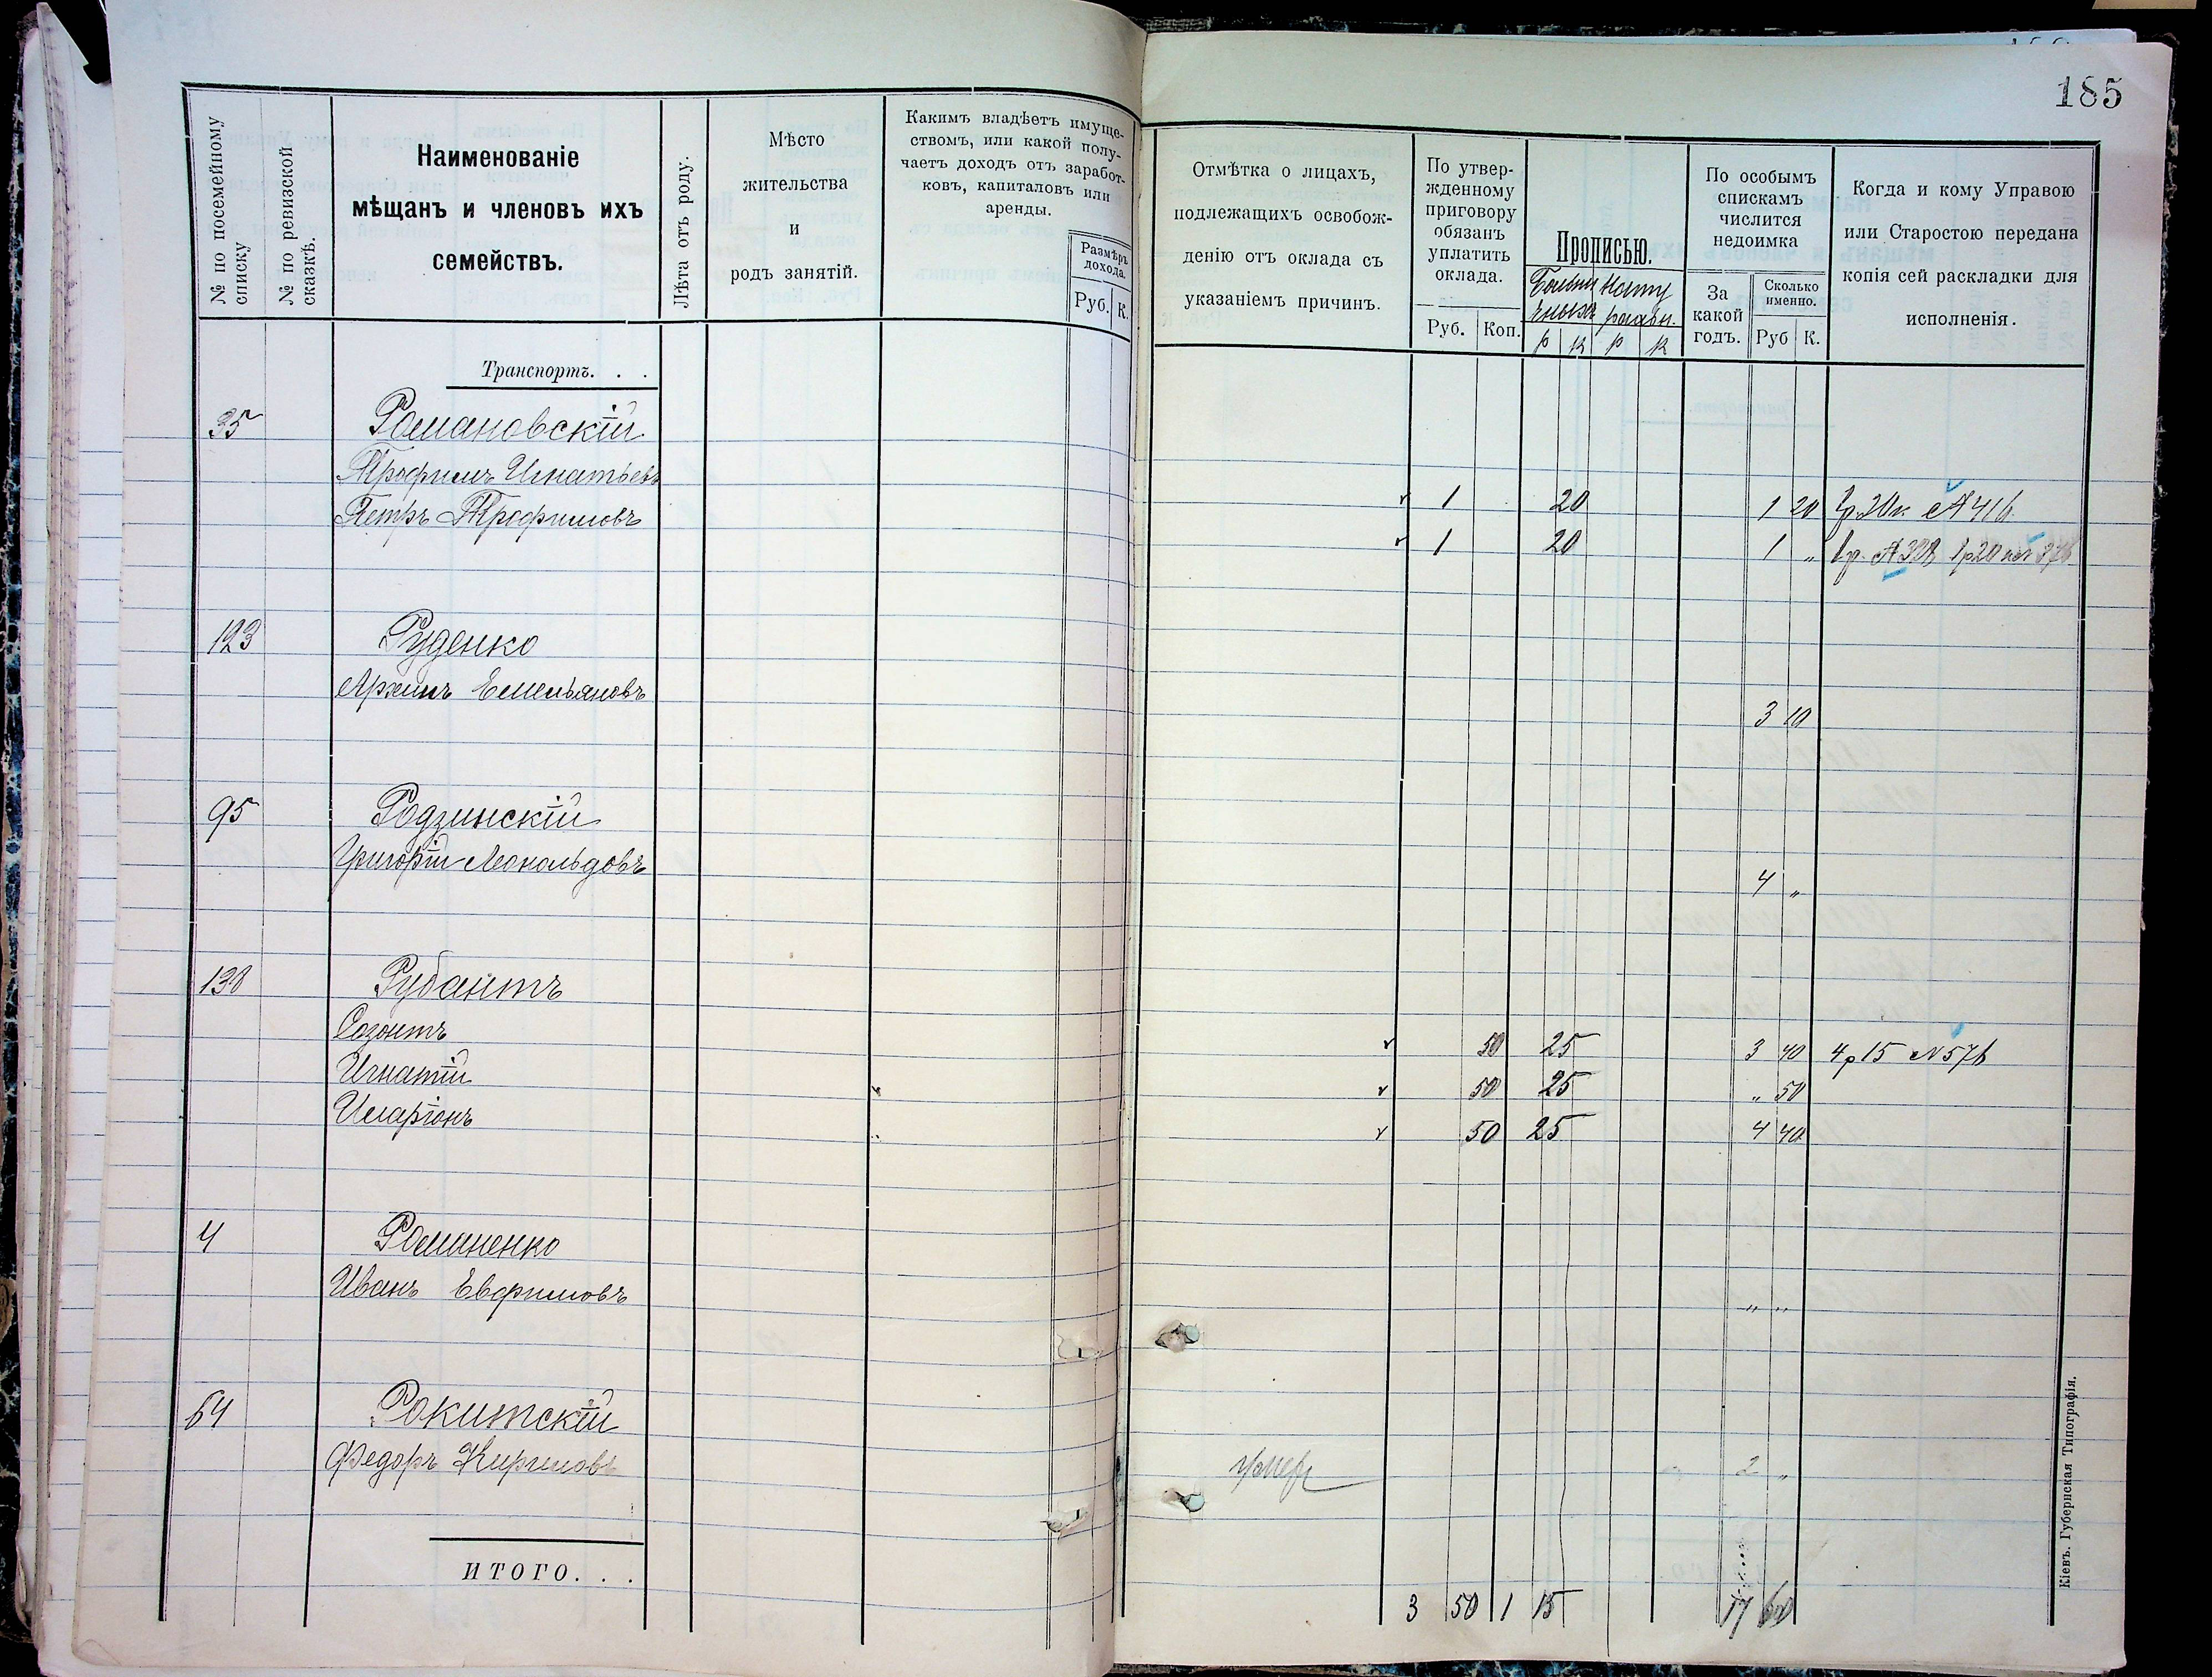 185
№ по посемейному списку
№ по ревизской сказкѣ.
Наименованіе
мѣщанъ и членовъ ихъ
семействъ.
Лѣта отъ роду.
Мѣсто
жительства
и
родъ занятій.
Какимъ владѣетъ имуще-
ствомъ, или какой полу-
чаетъ доходъ отъ заработ-
ковъ, капиталовъ или
аренды.
Размѣръ
дохода.
Руб. К.
Отмѣтка о лицахъ,
подлежащихъ освобож-
денію отъ оклада съ
указаніемъ причинъ.
По утвер-
жденному
приговору
обязанъ
уплатить
оклада.
Руб. Коп.
Прописью.
р к р к
По особымъ
спискамъ
числится
недоимка
За
какой
годъ.
Сколько
именно.
Руб К.
Когда и кому Управою
или Старостою передана
копія сей раскладки для
исполненія.
Транспортъ. . .
35 Романовскій
Трофимъ Игнатьевъ 1 20 1 20 1р. 20к №416
Петръ Трофимовъ 1 20 1 „
123 Руденко
Архипъ Емельяновъ 3 10
95 Родзинскій
Григорій Леопольдовъ 4 „
138 Рубантъ
Созонтъ 50 25 3 40 4р 15 №576
Игнатій 50 25 „ 50
Иларіонъ 50 25 4 40
4 Романенко
Иванъ Евфимовъ „ „
64 Рокитскій
Федоръ Кириловъ умеръ 2 „
ИТОГО. . .
3 50 1 15 17 60
Кіевъ. Губернская Типографія.